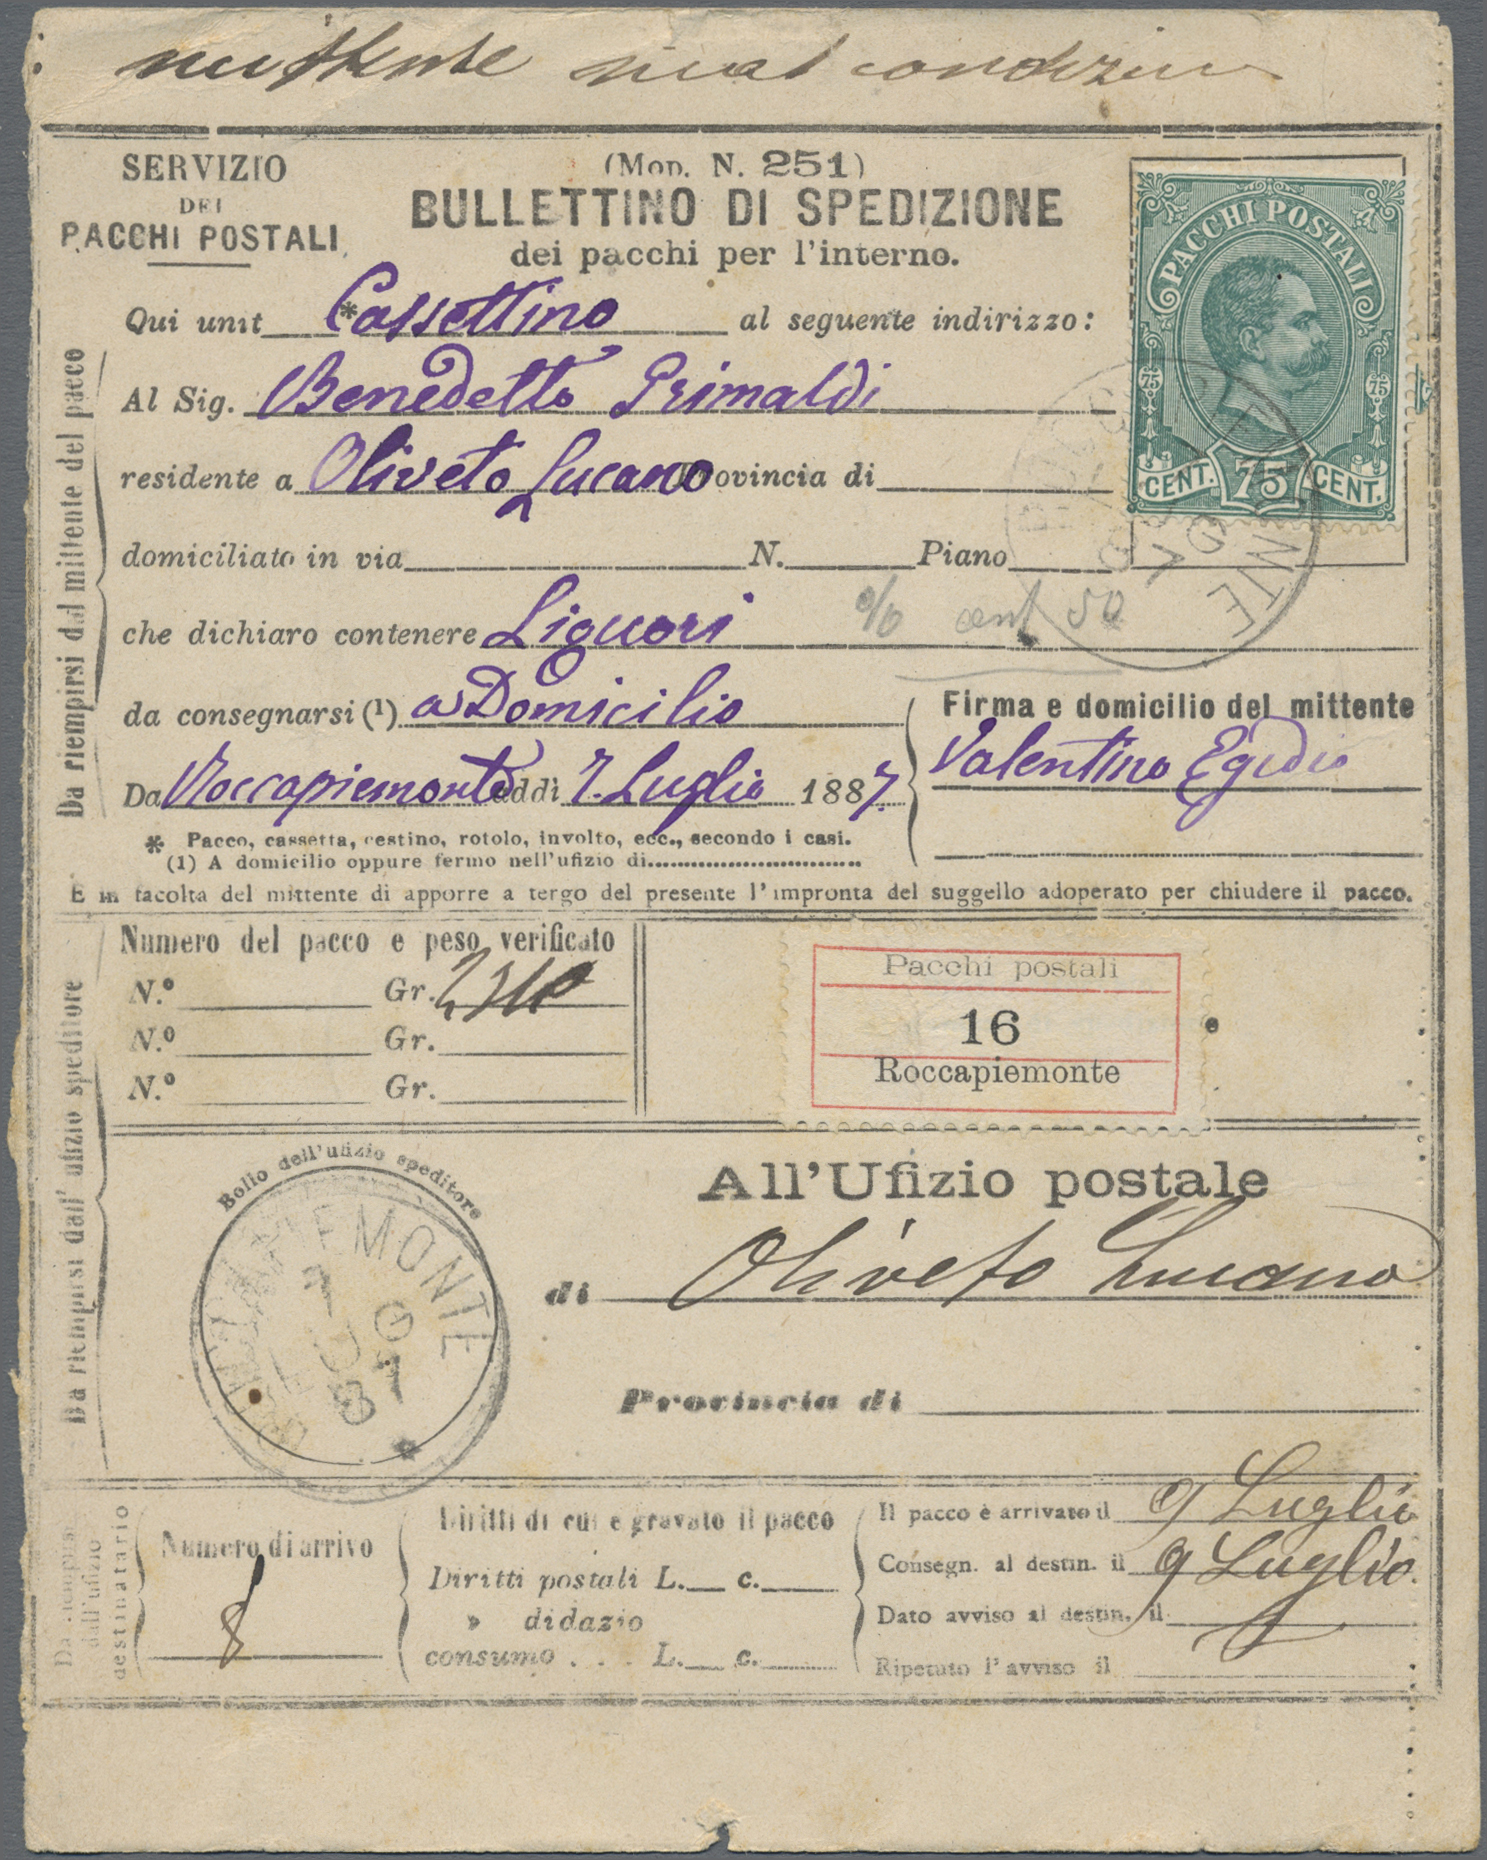 mittente
SERVIZIO
DEI
PACCHI POSTALI
(Mod. N. 251)
BULLETTINO DI SPEDIZIONE
dei pacchi per l'interno.
PACCHI POSTALI
75 75
CENT. 75 CENT.
Da riempirsi dal mittente del pacco
Qui unit Cassettino al seguente indirizzo:
Al Sig. Benedetto Primaldi
residente a Oliveto Lucano Provincia di
domiciliato in via N. Piano
che dichiaro contenere Liquori % cent 50
da consegnarsi (1) a Domicilio
Da Roccapiemonte addì 7. Luglio 1887.
Firma e domicilio del mittente
Valentino Egidio
* Pacco, cassetta, cestino, rotolo, involto, ecc., secondo i casi.
(1) A domicilio oppure fermo nell'ufizio di
È in facoltà del mittente di apporre a tergo del presente l'impronta del suggello adoperato per chiudere il pacco.
Da riempirsi dall'ufizio speditore
Numero del pacco e peso verificato
N.° Gr.
N.° Gr.
N.° Gr.
Pacchi postali
16
Roccapiemonte
Bollo dell'ufizio speditore
ROCCAPIEMONTE
7 LUG 87
All'Ufizio postale
di Oliveto Lucano
Provincia di
Da riempirsi
dall'ufizio
destinatario
Numero di arrivo
8
Diritti di cui è gravato il pacco
Diritti postali L. c.
» di dazio
consumo . . . L. c.
Il pacco è arrivato il 9 Luglio
Consegn. al destin. il 9 Luglio.
Dato avviso al destin. il
Ripetuto l'avviso il